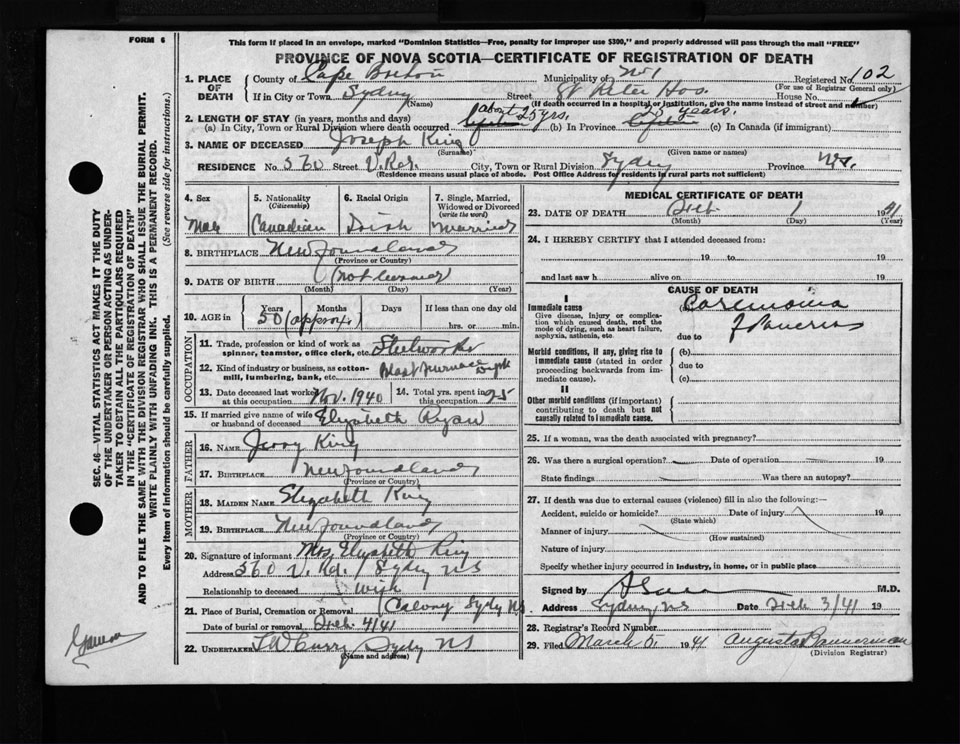 FORM 6
This form if placed in an envelope, marked "Dominion Statistics—Free, penalty for improper use $300," and properly addressed will pass through the mail "FREE"
PROVINCE OF NOVA SCOTIA—CERTIFICATE OF REGISTRATION OF DEATH
1. PLACE OF DEATH
County of Cape Breton Municipality of No 1 Registered No. 102
(For use of Registrar General only)
If in City or Town Sydney Street House No.
(Name) (If death occurred in a hospital or institution, give its name instead of street and number)
2. LENGTH OF STAY (in years, months and days)
(a) In City, Town or Rural Division where death occurred about 25 yrs. (b) In Province 25 years. (c) In Canada (if immigrant)
3. NAME OF DECEASED Joseph King
(Surname) (Given name or names)
RESIDENCE No. 560 Street V. Rd. City, Town or Rural Division Sydney Province N.S.
(Residence means usual place of abode. Post Office Address for residents in rural parts not sufficient)
4. Sex
Male
5. Nationality
(Citizenship)
Canadian
6. Racial Origin
Irish
7. Single, Married, Widowed or Divorced
(write the word)
Married
8. BIRTHPLACE Newfoundland
(Province or Country)
9. DATE OF BIRTH (not known)
(Month) (Day) (Year)
10. AGE in
Years Months Days If less than one day old
50 (approx.) hrs. or min.
OCCUPATION
11. Trade, profession or kind of work as spinner, teamster, office clerk, etc. Steelworker
12. Kind of industry or business, as cotton-mill, lumbering, bank, etc. Blast Furnace Dept
13. Date deceased last worked at this occupation Nov. 1940
14. Total years spent in this occupation 25
15. If married give name of wife or husband of deceased Elizabeth Ryan
FATHER
16. NAME Jerry King
17. BIRTHPLACE Newfoundland
(Province or Country)
MOTHER
18. MAIDEN NAME Elizabeth King
19. BIRTHPLACE Newfoundland
(Province or Country)
20. Signature of informant Mrs. Elizabeth King
Address 560 V. Rd. Sydney NS
Relationship to deceased Wife
21. Place of Burial, Cremation or Removal Calvary Sydney NS.
Date of burial or removal Feb. 4/41
22. UNDERTAKER Curry Sydney NS
(Name and address)
MEDICAL CERTIFICATE OF DEATH
23. DATE OF DEATH Feb 1 1941
(Month) (Day) (Year)
24. I HEREBY CERTIFY that I attended deceased from:
19 to 19
and last saw h alive on 19
CAUSE OF DEATH
I
Immediate cause
Give disease, injury or complication which caused death, not the mode of dying, such as heart failure, asphyxia, asthenia, etc.
Carcinoma
of Pancreas
due to
Morbid conditions, if any, giving rise to immediate cause (stated in order proceeding backwards from immediate cause).
(b)
due to
(c)
II
Other morbid conditions (if important) contributing to death but not causally related to immediate cause.
25. If a woman, was the death associated with pregnancy?
26. Was there a surgical operation? Date of operation 19
State findings Was there an autopsy?
27. If death was due to external causes (violence) fill in also the following:—
Accident, suicide or homicide? Date of injury 19
(State which)
Manner of injury
(How sustained)
Nature of injury
Specify whether injury occurred in industry, in home, or in public place
Signed by M.D.
Address Sydney, NS Date Feb 3/41 19
28. Registrar's Record Number
29. Filed March 5, 1941 Augusta Bannerman
(Division Registrar)
SEC. 46—VITAL STATISTICS ACT MAKES IT THE DUTY
OF THE UNDERTAKER OR PERSON ACTING AS UNDERTAKER TO OBTAIN ALL THE PARTICULARS REQUIRED
IN THE "CERTIFICATE OF REGISTRATION OF DEATH"
AND TO FILE THE SAME WITH THE DIVISION REGISTRAR WHO SHALL ISSUE THE BURIAL PERMIT.
WRITE PLAINLY WITH UNFADING INK. THIS IS A PERMANENT RECORD.
Every item of information should be carefully supplied. (See reverse side for instructions.)